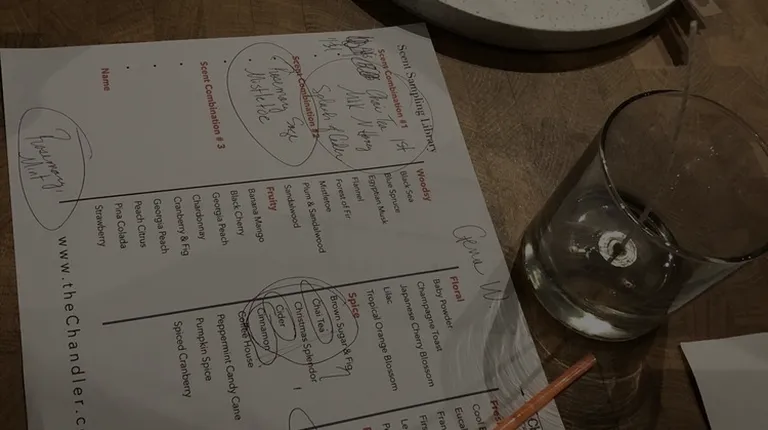 Scent Sampling Library
Scent Combination #1
1st
Chai Tea
Milk & Honey
Splash of Cider
Scent Combination #2
Rosemary Sage
Mistletoe
Scent Combination # 3
Name
Rosemary
Mint
Gena W
Woodsy
Black Sea
Blue Spruce
Egyptian Musk
Flannel
Forest of Fir
Mistletoe
Plum & Sandalwood
Sandalwood
Fruity
Banana Mango
Black Cherry
Georgia Peach
Chardonnay
Cranberry & Fig
Georgia Peach
Peach Citrus
Pina Colada
Strawberry
Floral
Baby Powder
Champagne Toast
Japanese Cherry Blossom
Lilac
Tropical Orange Blossom
Spice
Brown Sugar & Fig
Chai Tea
Christmas Splendor
Cider
Cinnamon
Coffee House
Peppermint Candy Cane
Pumpkin Spice
Spiced Cranberry
www.theChandler.c